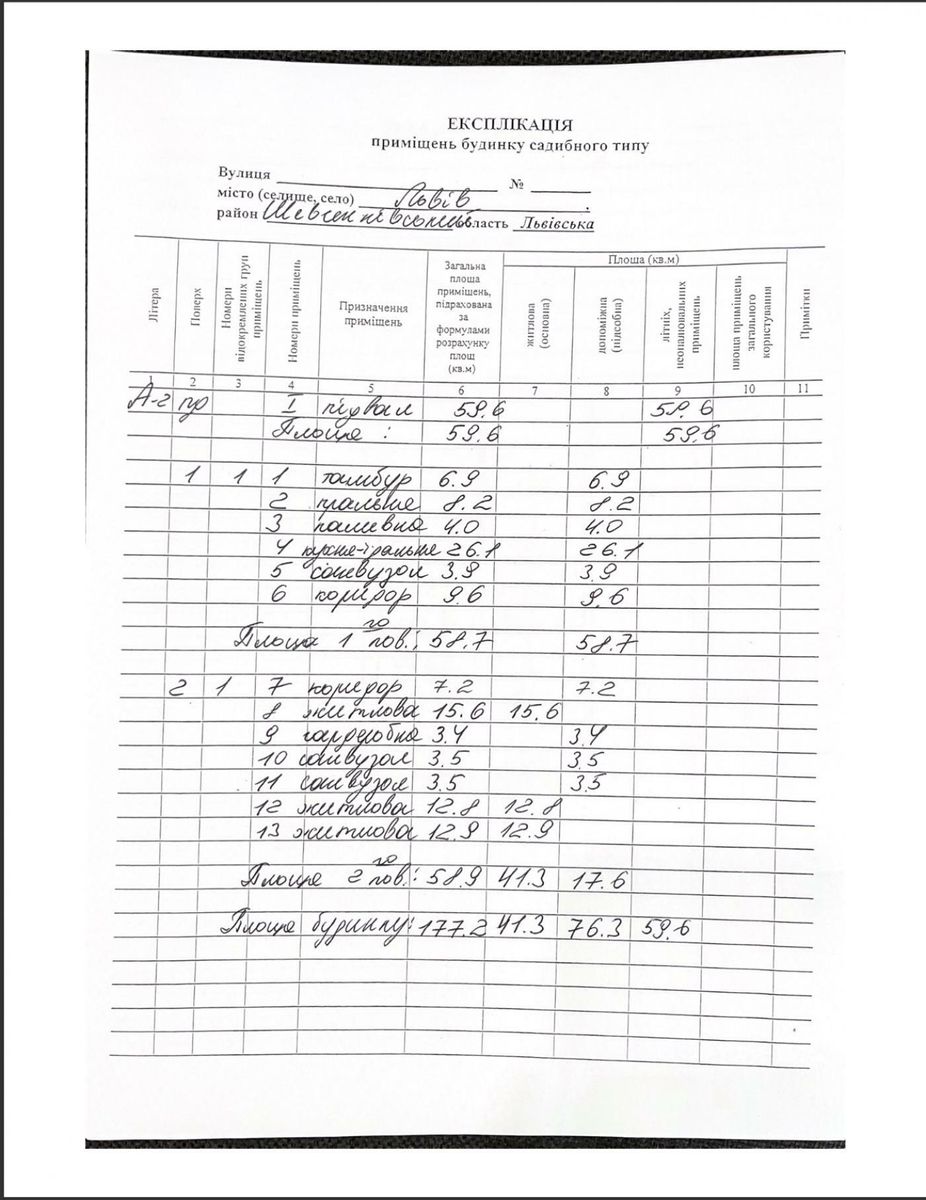 ЕКСПЛІКАЦІЯ
приміщень будинку садибного типу
Вулиця № 
місто (селище, село) Львів .
район Шевченківський область Львівська
Літера Поверх Номери відокремлених груп приміщень Номери приміщень Призначення приміщень Загальна площа приміщень, підрахована за формулами розрахунку площ (кв.м) Площа (кв.м) житлова (основна) допоміжна (підсобна) літніх, неопалювальних приміщень площа приміщень загального користування Примітки
1 2 3 4 5 6 7 8 9 10 11
А-2 пд I підвал 59.6 59.6
Площа : 59.6 59.6
1 1 1 тамбур 6.9 6.9
2 пральня 8.2 8.2
3 паливна 4.0 4.0
4 кухня-їдальня 26.1 26.1
5 санвузол 3.9 3.9
6 коридор 9.6 9.6
Площа 1го пов.: 58.7 58.7
2 1 7 коридор 7.2 7.2
8 житлова 15.6 15.6
9 гардеробна 3.4 3.4
10 санвузол 3.5 3.5
11 санвузол 3.5 3.5
12 житлова 12.8 12.8
13 житлова 12.9 12.9
Площа 2го пов.: 58.9 41.3 17.6
Площа будинку: 177.2 41.3 76.3 59.6